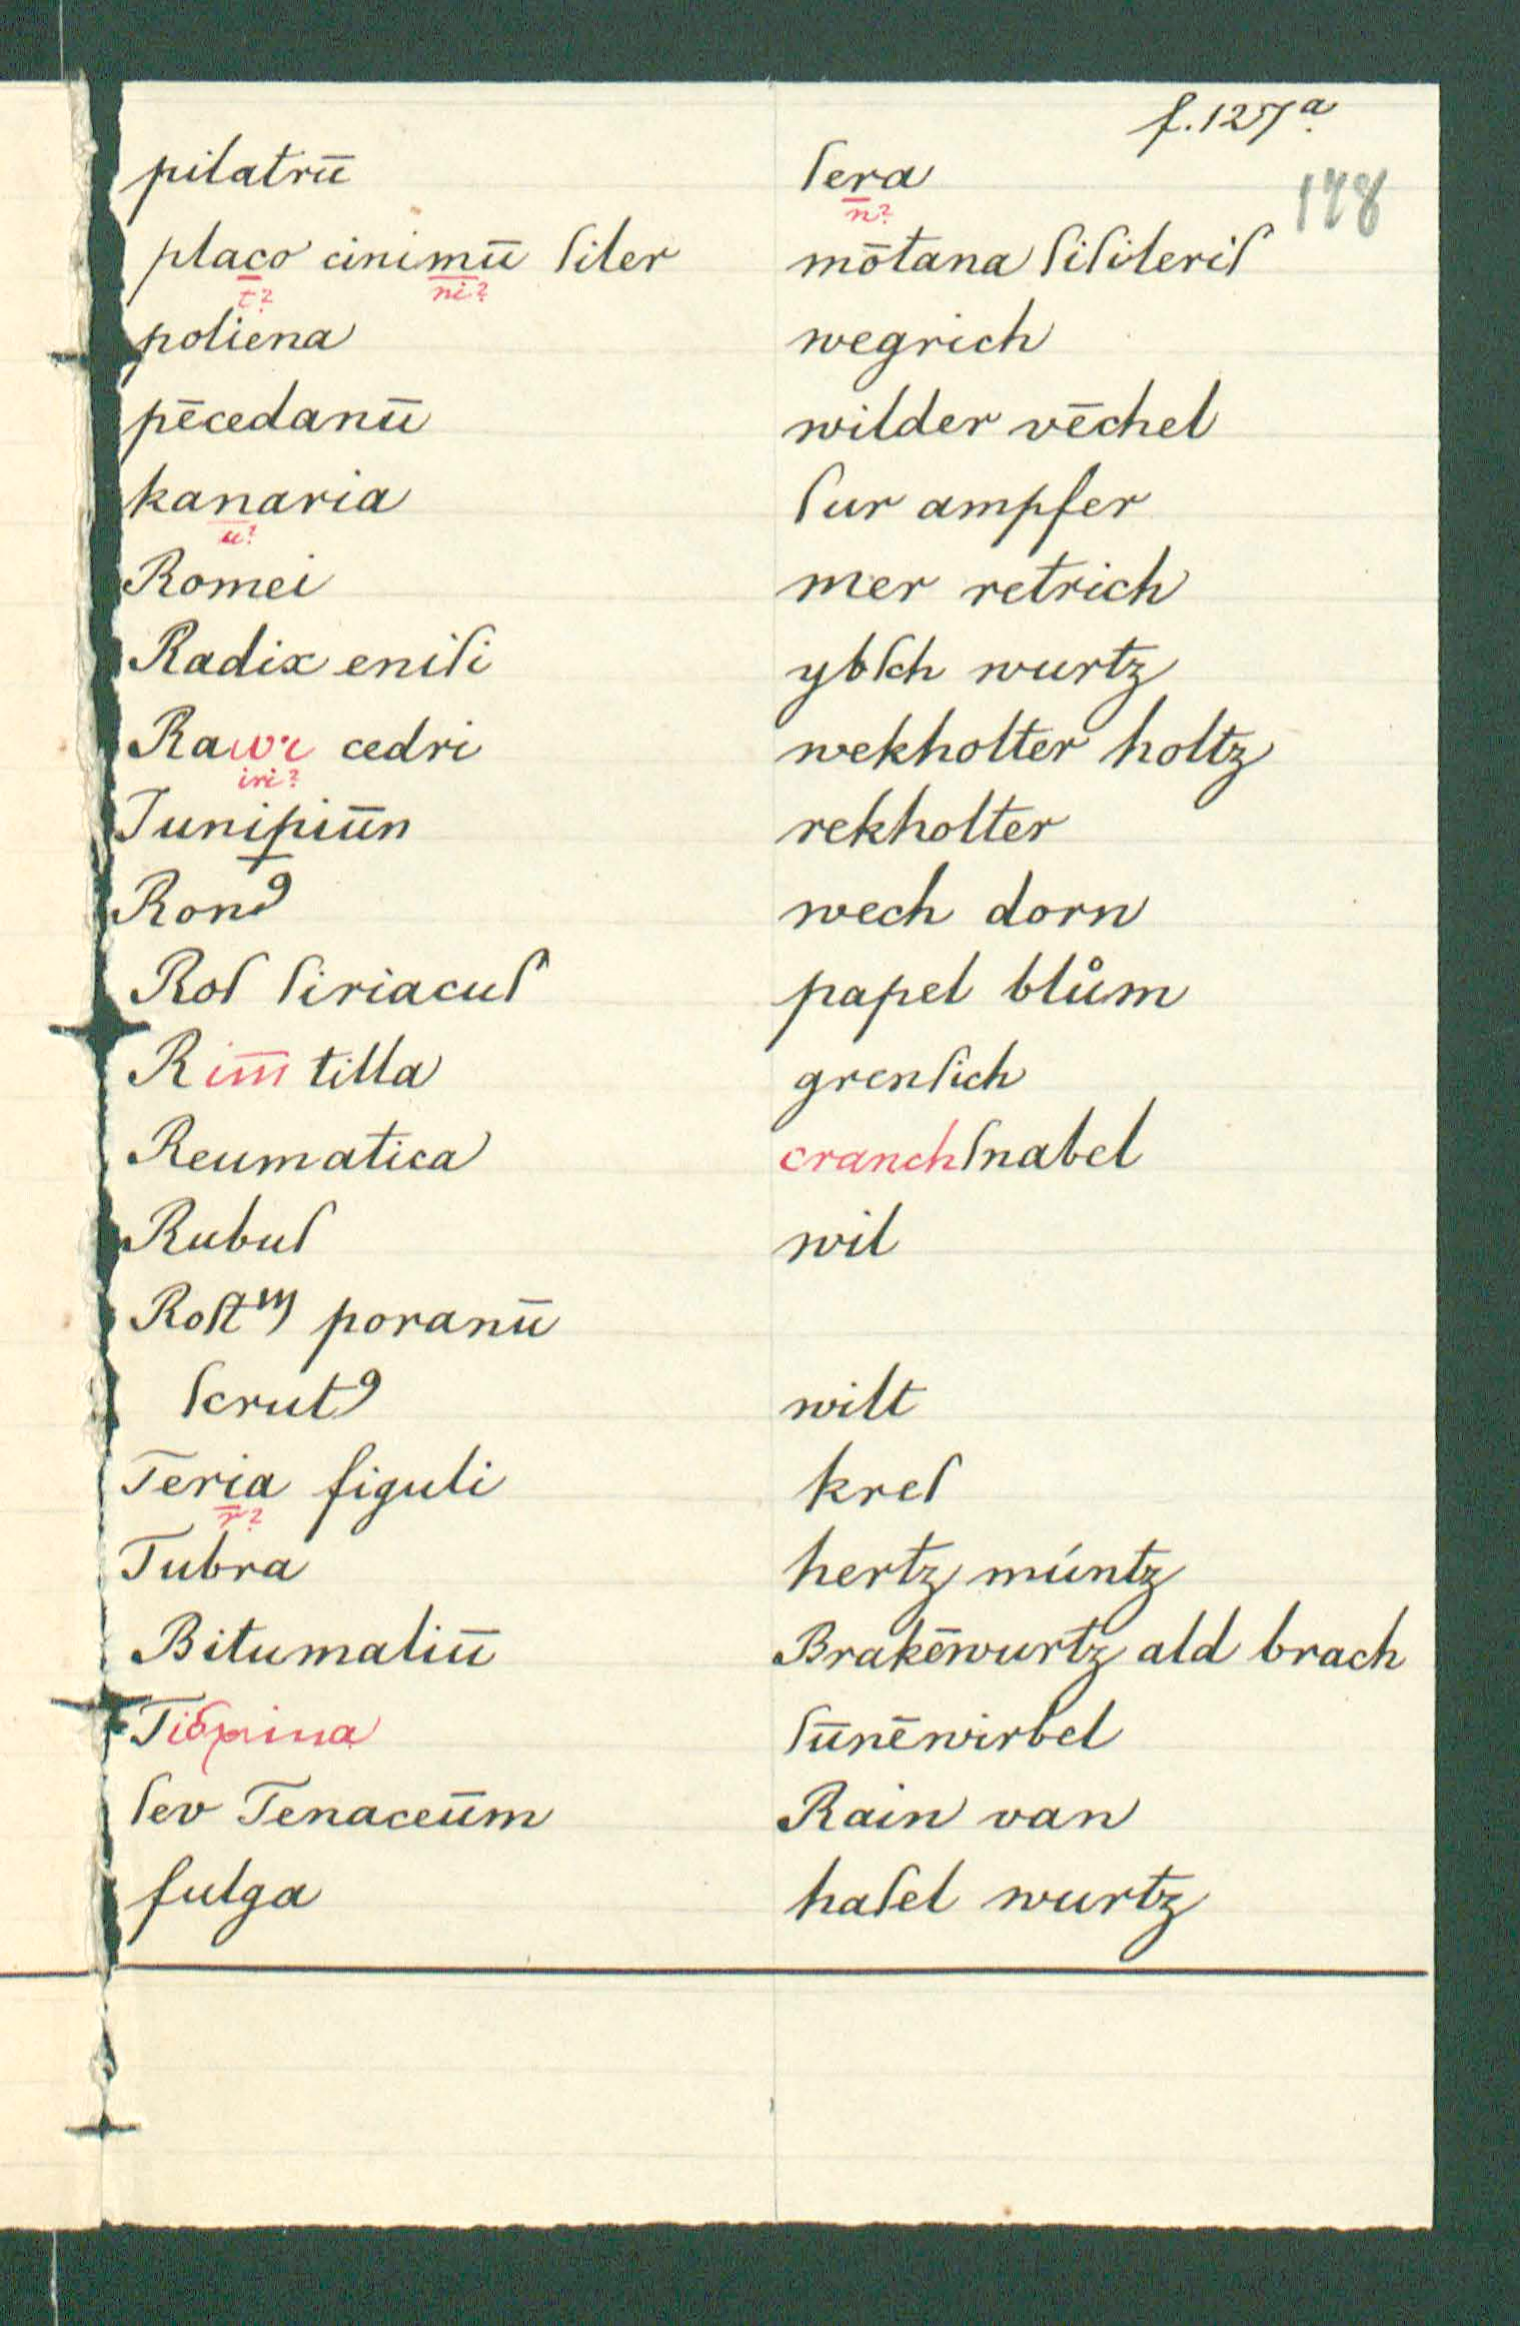 f. 127ª.
178
pilatrū ſera
n?
placo cinimū ſiler mōtana ſiſileriſ
t? ni?
poliena wegrich
pēcedanū wilder vēchel
kanaria ſur ampfer
u?
Romei mer retrich
Radix eniſi ybſch wurtz
Rawr cedri wekholter holtz
iri?
Juniꝑiūn rekholter
Ronꝰ wech dorn
Roſ ſiriacuſ papel blům
R im̄ tilla grenſich
Reumatica cranchſnabel
Rubuſ wil
Roſtᵐ poranū
ſcrutꝰ wilt
Teria figuli kreſ
r?
Tubra hertz múntz
Bitumaliū Brakēwurtz ald brach
ſūnēwirbel
ſev Tenaceūm Rain van
fulga haſel wurtz